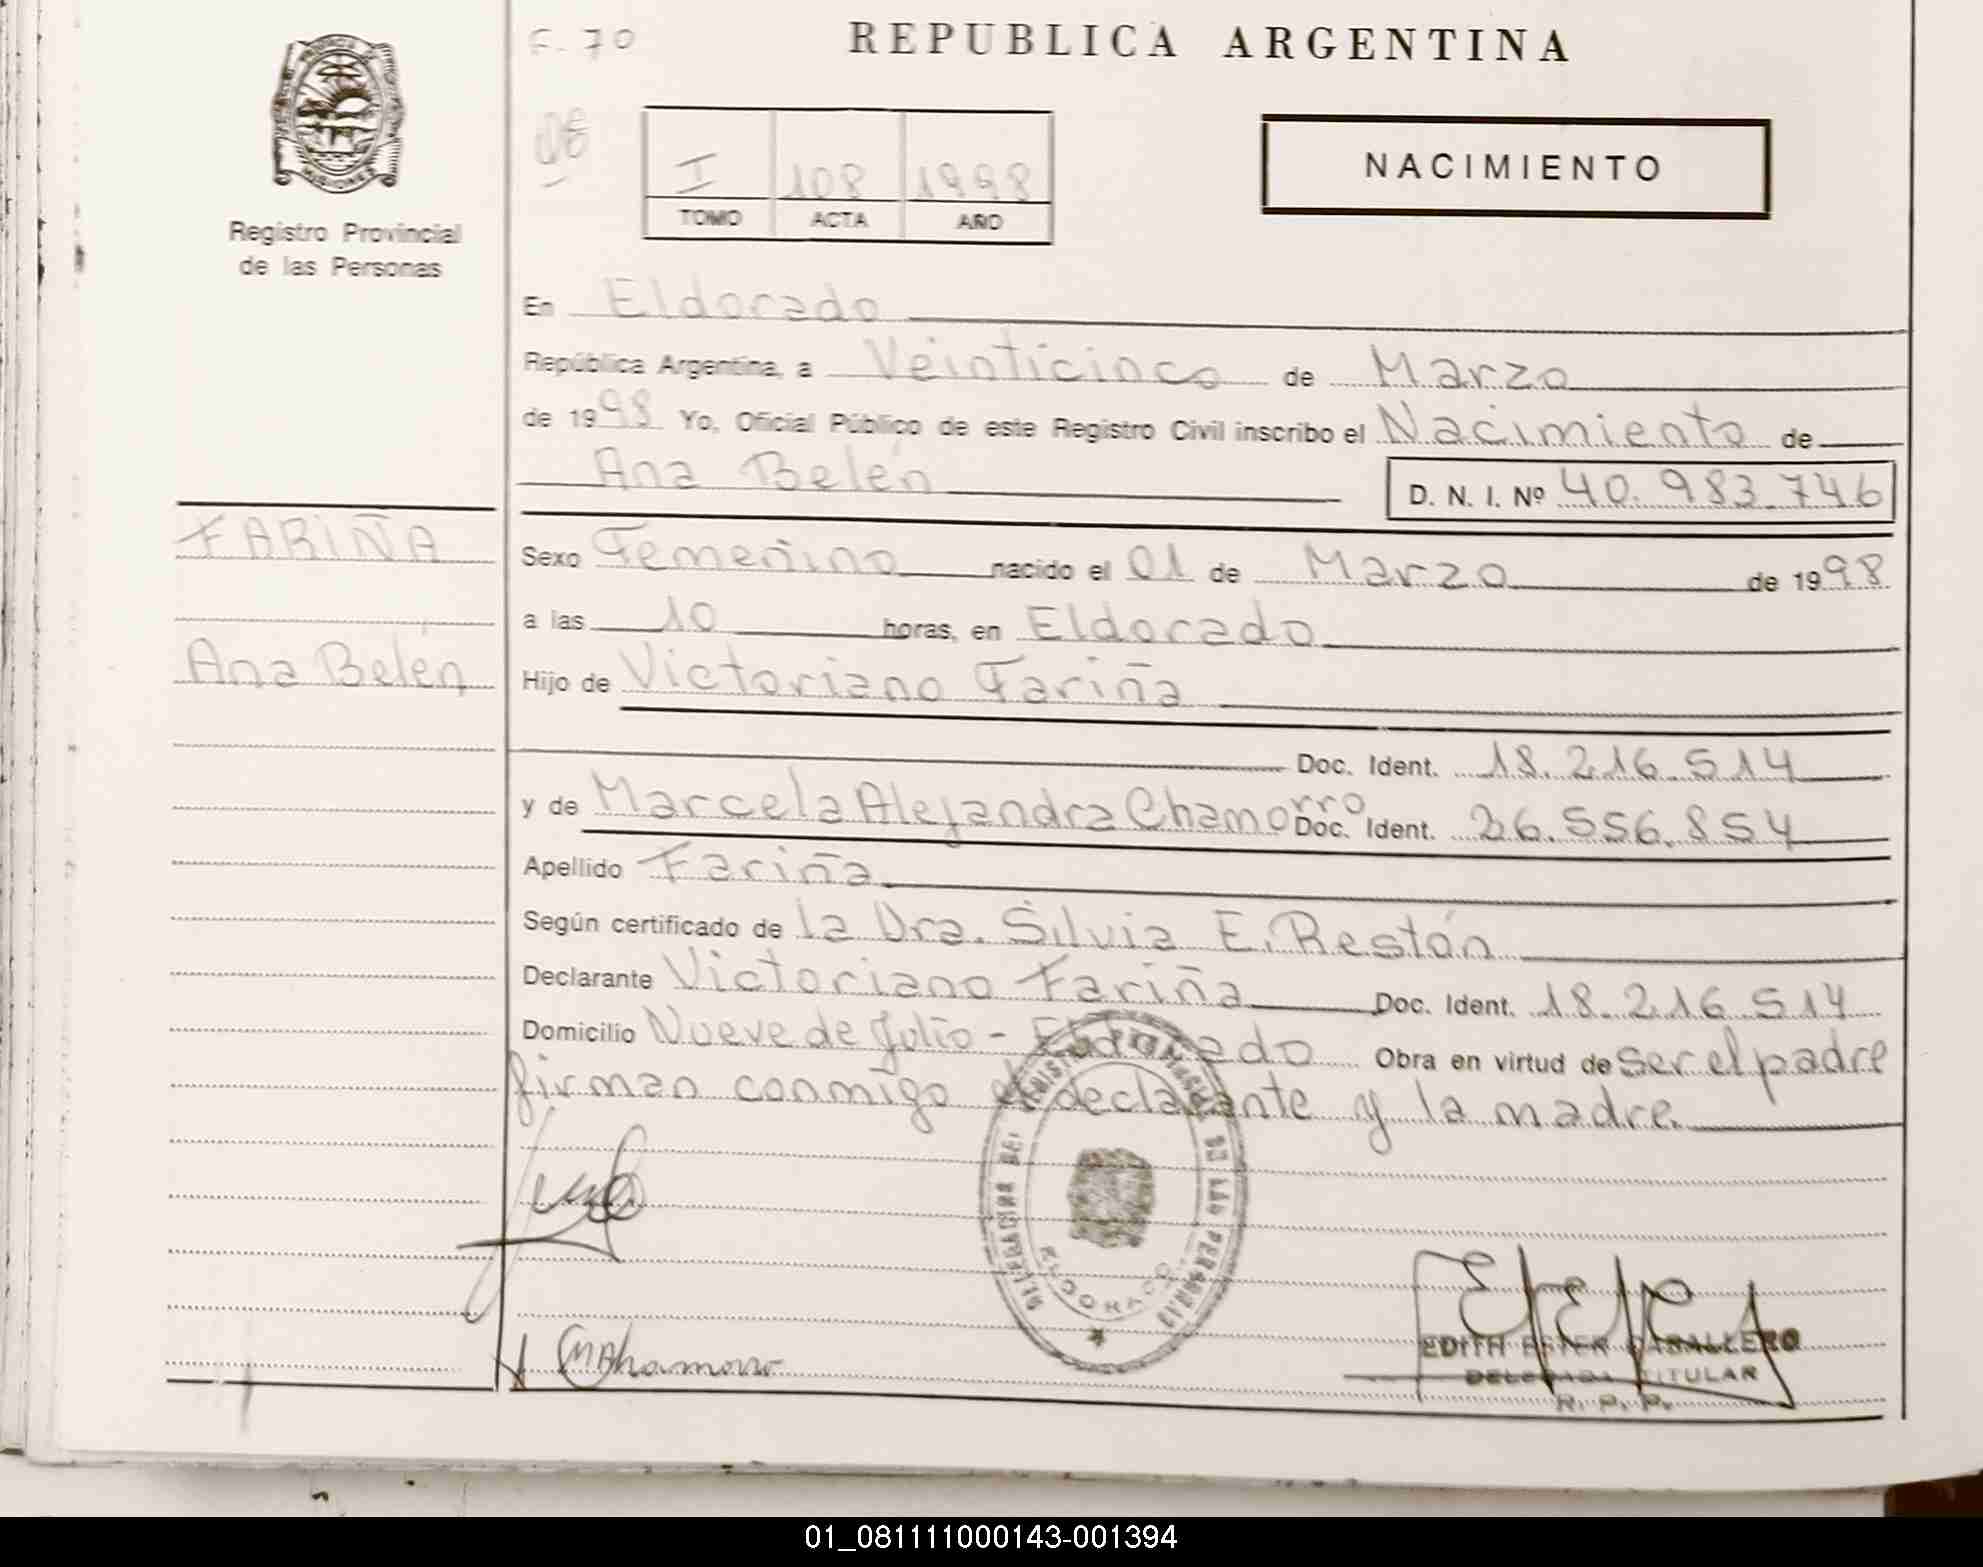 F. 70
REPUBLICA ARGENTINA
MISIONES
Registro Provincial
de las Personas
I 108 1998
TOMO ACTA AÑO
NACIMIENTO
En Eldorado
República Argentina, a Veinticinco de Marzo
de 1998 Yo, Oficial Público de este Registro Civil inscribo el Nacimiento de
Ana Belén D. N. I. Nº 40.983.746
FARIÑA
Ana Belén
Sexo Femenino nacido el 01 de Marzo de 1998
a las 10 horas, en Eldorado
Hijo de Victoriano Fariña
Doc. Ident. 18.216.514
y de Marcela Alejandra Chamorro Doc. Ident. 26.556.854
Apellido Fariña
Según certificado de la Dra. Silvia E. Restón
Declarante Victoriano Fariña Doc. Ident. 18.216.514
Domicilio Nueve de Julio - Eldorado Obra en virtud de ser el padre
firman conmigo el declarante y la madre.
DE LAS PERSONAS
ELDORADO
MAChamorro
EDITH ESTER CABALLERO
DELEGADA TITULAR
R. P. P.
01_081111000143-001394